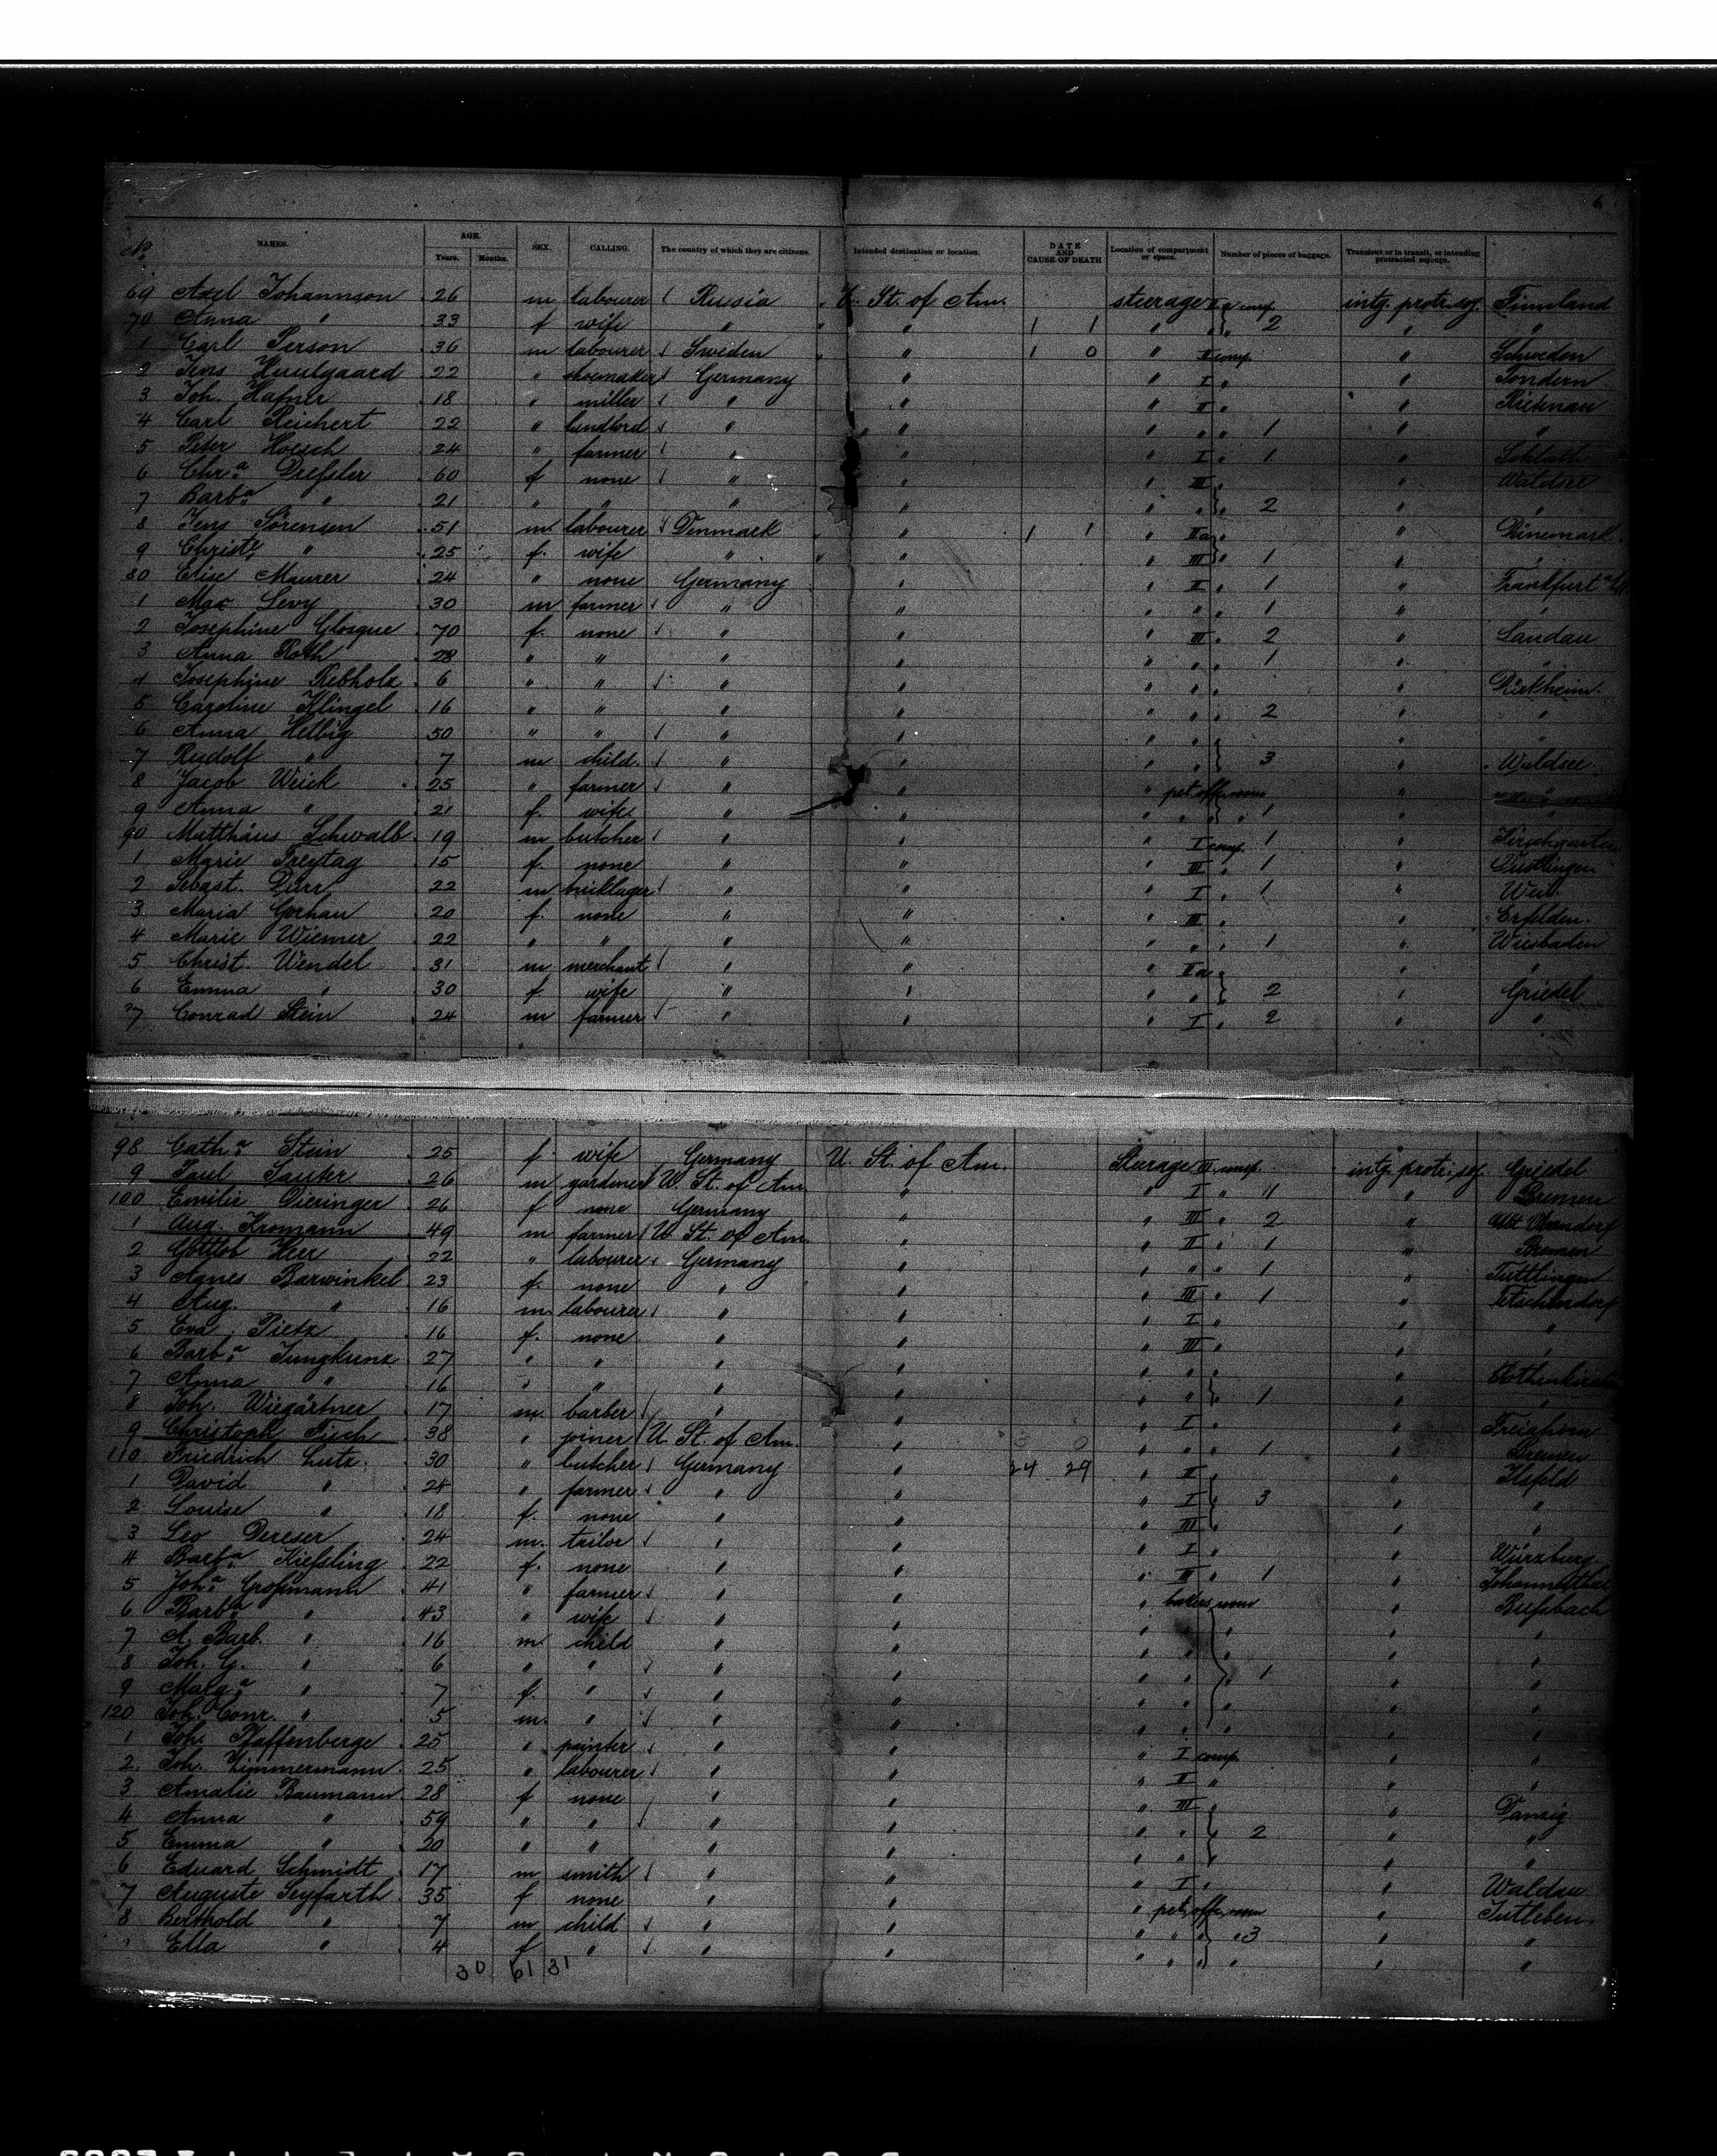 6
No NAMES. AGE. Years. Months. SEX. CALLING. The country of which they are citizens. Intended destination or location. DATE AND CAUSE OF DEATH Location of compartment or space. Number of pieces of baggage. Transient or in transit, or intending protracted sojourn.
69 Axel Johannson 26 m labourer Russia U. St. of Am. steerage II a comp. intg. protr. soj. Finnland
70 Anna " 33 f wife " " 1 1 " " " 2 " "
1 Carl Person 36 m labourer Sweden " 1 0 " II comp. " Schweden
2 Jens Huulgaard 22 " shoemaker Germany " " I " " Tondern
3 Joh. Hafner 18 " miller " " " II " "
4 Carl Reichert 22 " landlord " " " " " 1 " "
5 Peter Hoesch 24 " farmer " " " I " 1 "
6 Chra. Dreßler 60 f none " " " III " " Waldsee
7 Barba. " 21 " " " " " " " 2 " "
8 Jens Sörensen 51 m labourer Denmark " 1 1 " II a " " Dänemark
9 Christe. " 25 f. wife " " " III " 1 " "
80 Elise Maurer 24 " none Germany " " II " 1 " Frankfurt a/M.
1 Max Levy 30 m farmer " " " " " 1 " "
2 Josephine Glosque 70 f. none " " " III " 2 " Landau
3 Anna Roth 28 " " " " " " " 1 " "
4 Josephine Rebholz 6 " " " " " " " "
5 Caroline Klingel 16 " " " " " " " 2 " "
6 Anna Helbig 50 " " " " " " " " "
7 Rudolf " 7 m child " " " " " 3 " Waldsee
8 Jacob Weick 25 " farmer " " " pet. off. room "
9 Anna " 21 f. wife " " " " " 1 " "
90 Matthäus Schwalb 19 m butcher " " " I comp. 1 "
1 Marie Freytag 15 f. none " " " III " 1 "
2 Sebast. Dürr 22 m bricklager " " " I " 1 "
3 Maria Gorhau 20 f. none " " " III " " Erfelden
4 Marie Wiemer 22 " " " " " " " 1 " Wiesbaden
5 Christ. Wendel 31 m merchant " " " II a " " "
6 Emma " 30 f wife " " " " " 2 " Griedel
97 Conrad Stein 24 m farmer " " " I " 2 " "
98 Catha. Stein 25 f wife Germany U. St. of Am. Steerage III comp. intg. protr. soj. Griedel
9 Paul Sauter 26 m gardener U. St. of Am. " " I " 11 " Bremen
100 Emilie Dieringer 26 f none Germany " " III " 2 "
1 Aug. Kromann 49 m farmer U. St. of Am. " " II " 1 " Bremen
2 Gottlob Heer 22 " labourer Germany " " " " 1 " Tuttlingen
3 Agnes Barwinkel 23 f. none " " " III " 1 "
4 Aug. " 16 m. labourer " " " I " " "
5 Eva Pietz 16 f. none " " " III " " "
6 Barba. Jungkunz 27 " " " " " " " "
7 Anna " 16 " " " " " " " 1 " "
8 Joh. Wiegärtner 17 m. barber " " " I " "
9 Christoph Fisch 38 " joiner U. St. of Am. " 0 " " " 1 " Bremen
110 Friedrich Lutz 30 " butcher Germany " 24 29 " II " " Ilsfeld
1 David " 24 " farmer " " " I " 3 " "
2 Louise " 18 f. none " " " III " " "
3 Leo Dereser 24 m. tailor " " " I " " Würzburg
4 Barba. Kießling 22 f. none " " " III " 1 " Johannisthal
5 Joha. Großmann 41 " farmer " " " bakers room " Bußbach
6 Barba. " 43 " wife " " " " " " "
7 A. Barb. " 16 m. child " " " " " " "
8 Joh. G. " 6 " " " " " " " 1 " "
9 Marga. " 7 f. " " " " " " " "
120 Joh. Conr. " 5 m. " " " " " " " "
1 Joh. Pfaffenberge 25 " painter " " " I comp. " "
2 Joh. Zimmermann 25 " labourer " " " II " " "
3 Amalie Baumann 28 f none " " " III " " Danzig
4 Anna " 59 " " " " " " " 2 " "
5 Emma " 20 " " " " " " " " "
6 Eduard Schmidt 17 m smith " " " I " " Waldau
7 Auguste Seyfarth 35 f none " " " pet. off. room " Tüttleben
8 Berthold " 7 m child " " " " " 3 " "
" Ella " 4 f " " " " " " " "
30 61 31